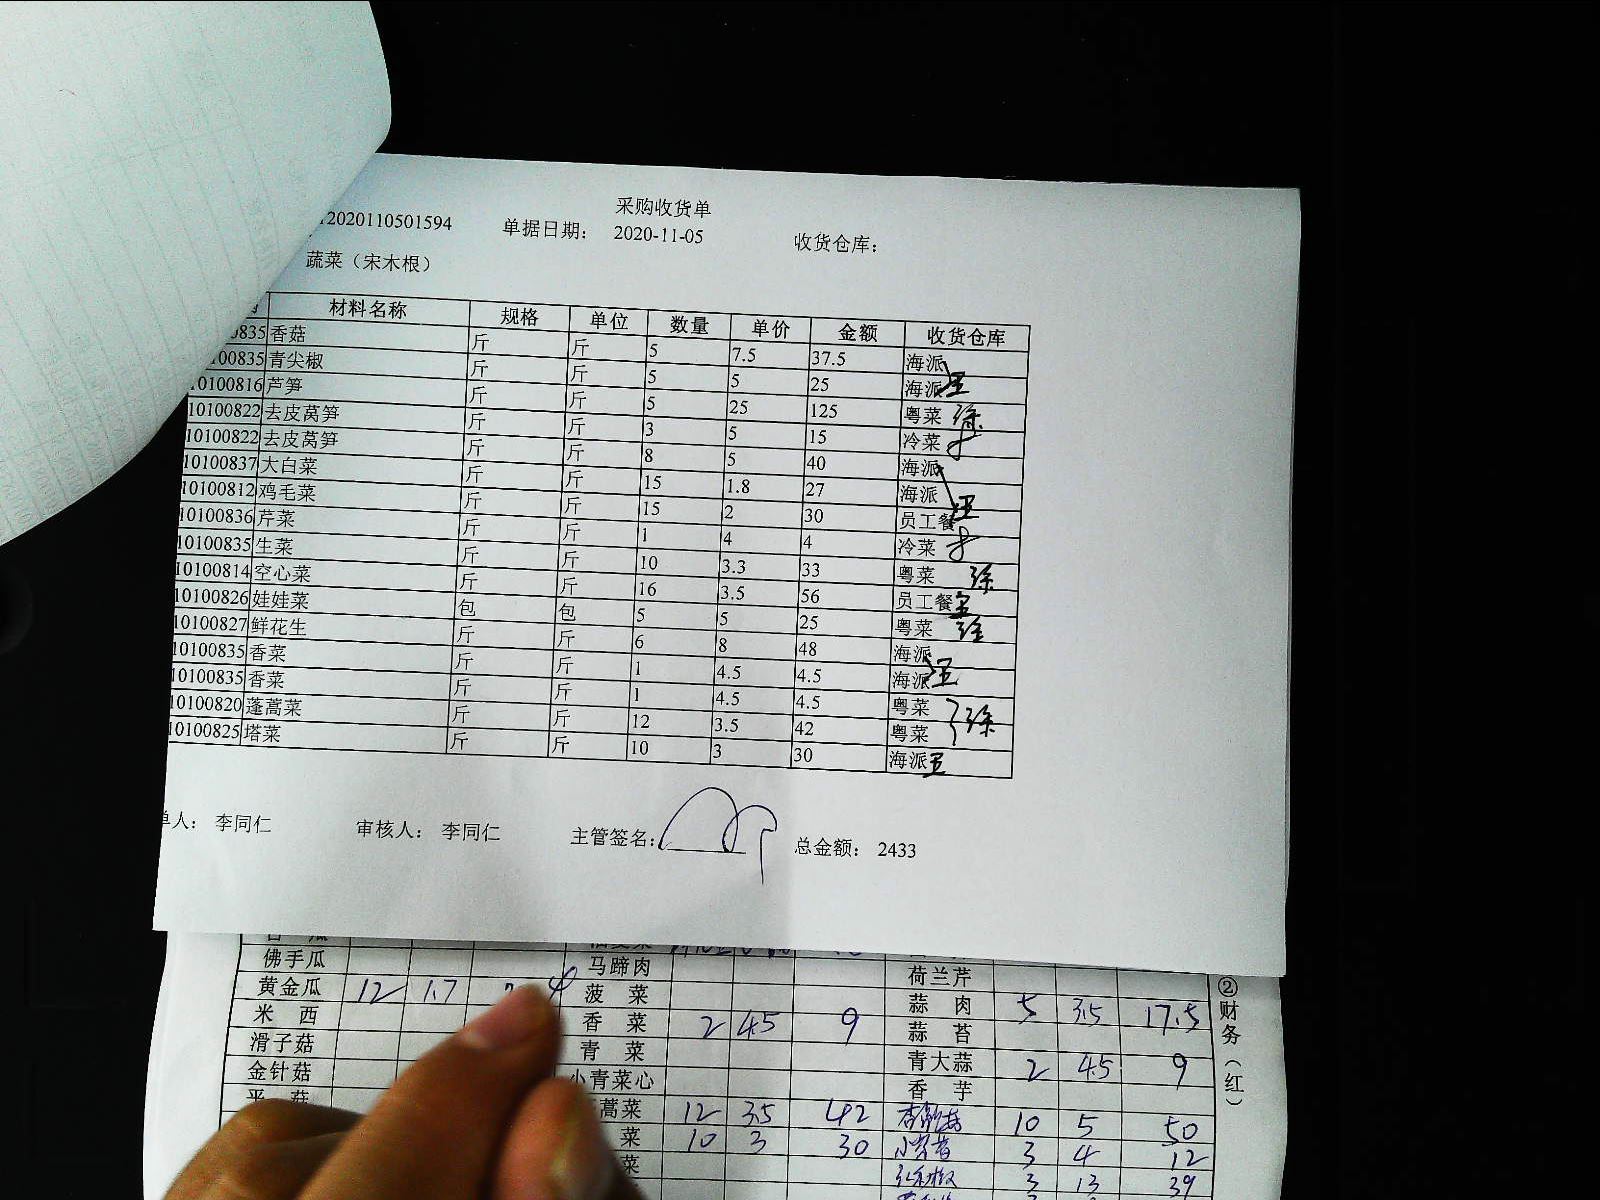 采购收货单
12020110501594 单据日期： 2020-11-05 收货仓库：
蔬菜（宋木根）
材料名称 规格 单位 数量 单价 金额 收货仓库
0835 香菇 斤 斤 5 7.5 37.5 海派
100835 青尖椒 斤 斤 5 5 25 海派 王
10100816 芦笋 斤 斤 5 25 125 粤菜 徐
10100822 去皮莴笋 斤 斤 3 5 15 冷菜
10100822 去皮莴笋 斤 斤 8 5 40 海派
10100837 大白菜 斤 斤 15 1.8 27 海派
10100812 鸡毛菜 斤 斤 15 2 30 员工餐 王
10100836 芹菜 斤 斤 1 4 4 冷菜
10100835 生菜 斤 斤 10 3.3 33 粤菜 徐
10100814 空心菜 斤 斤 16 3.5 56 员工餐 王
10100826 娃娃菜 包 包 5 5 25 粤菜 徐
10100827 鲜花生 斤 斤 6 8 48 海派
10100835 香菜 斤 斤 1 4.5 4.5 海派 王
10100835 香菜 斤 斤 1 4.5 4.5 粤菜
10100820 蓬蒿菜 斤 斤 12 3.5 42 粤菜 徐
10100825 塔菜 斤 斤 10 3 30 海派 王
单人： 李同仁 审核人： 李同仁 主管签名： 总金额： 2433
佛手瓜 马蹄肉 荷兰芹
黄金瓜 12 1.7 菠菜 蒜肉 5 3.5 17.5
米西 香菜 2 4.5 9 蒜苔
滑子菇 青菜 青大蒜 2 4.5 9
金针菇 小青菜心 香芋
平菇 蒿菜 12 3.5 42 10 5 50
菜 10 3 30 3 4 12
菜 3 13 39
②财务（红）